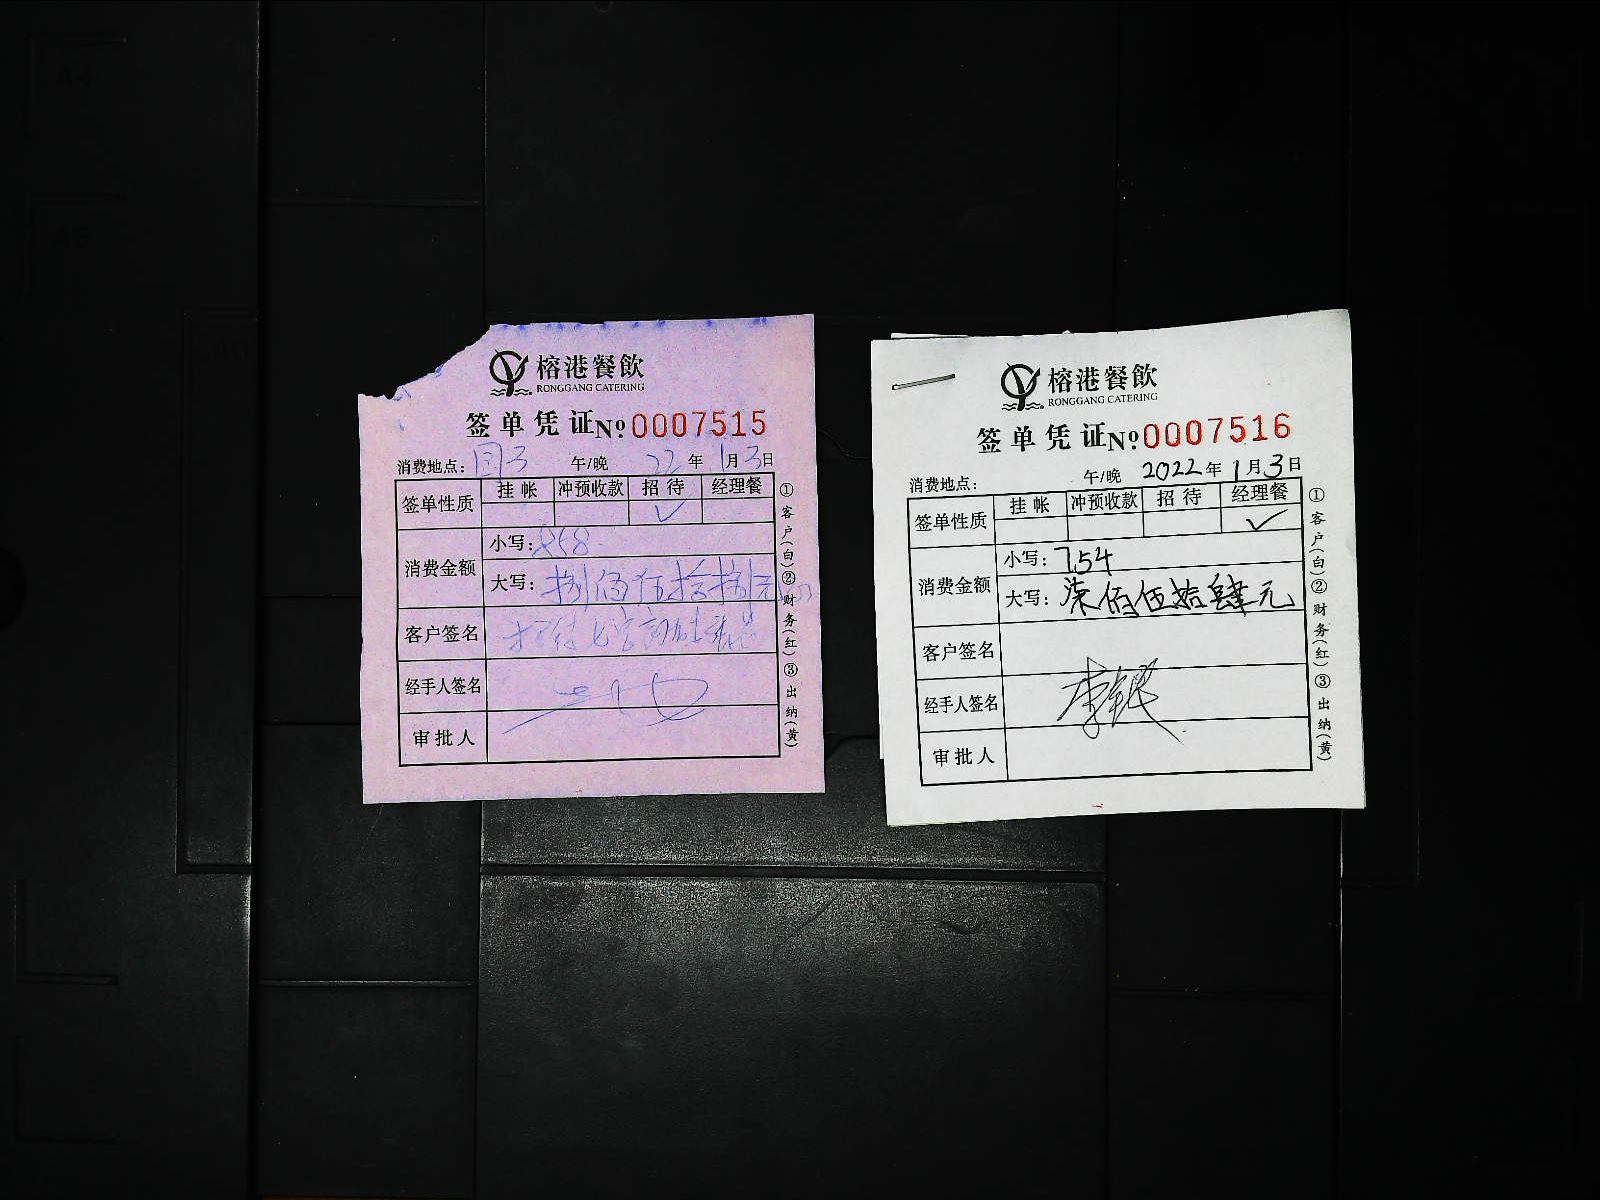 榕港餐飲
RONGGANG CATERING
签单凭证№0007515
消费地点： 午/晚 22年1月3日
签单性质 挂帐 冲预收款 招待 经理餐
✓
消费金额 小写：858
大写：捌佰伍拾捌元
客户签名
经手人签名
审批人
①客户(白)②财务(红)③出纳(黄)
榕港餐飲
RONGGANG CATERING
签单凭证№0007516
消费地点： 午/晚 2022年1月3日
签单性质 挂帐 冲预收款 招待 经理餐
✓
消费金额 小写：754
大写：柒佰伍拾肆元
客户签名
经手人签名
审批人
①客户(白)②财务(红)③出纳(黄)